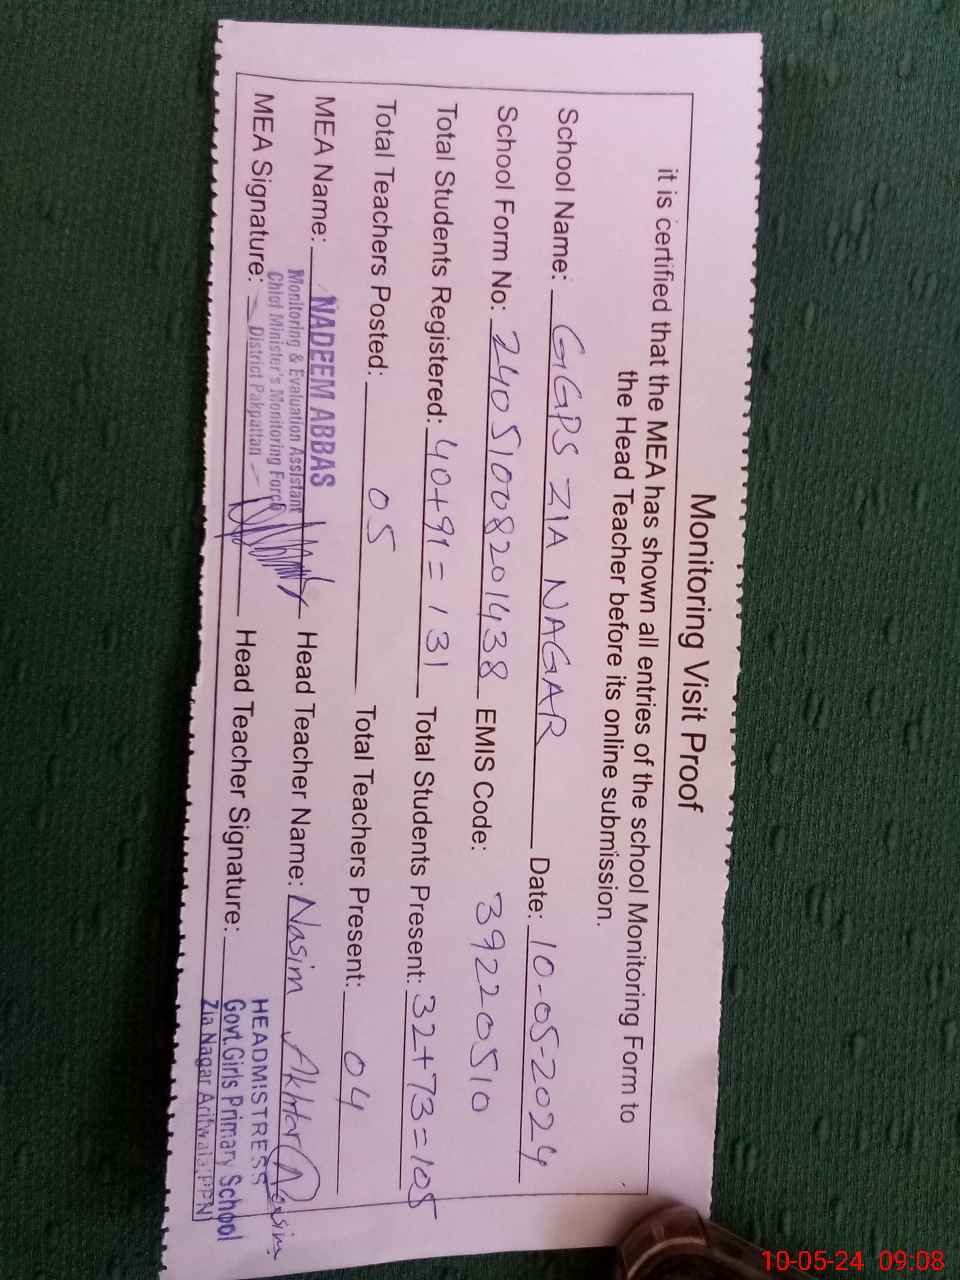 Monitoring Visit Proof
it is certified that the MEA has shown all entries of the school Monitoring Form to
the Head Teacher before its online submission.
School Name: GGPS ZIA NAGAR Date: 10-05-2024
School Form No: 24051008201438 EMIS Code: 39220510
Total Students Registered: 40+91=131 Total Students Present: 32+73=105
Total Teachers Posted: 05 Total Teachers Present: 04
MEA Name: NADEEM ABBAS Head Teacher Name: Nasim Akhtar
Monitoring & Evaluation Assistant
Chief Minister's Monitoring Force
District Pakpattan
MEA Signature: Head Teacher Signature: Nasim
HEADMISTRESS
Govt.Girls Primary School
Zia Nagar Arifwala(PPN)
10-05-24 09:08